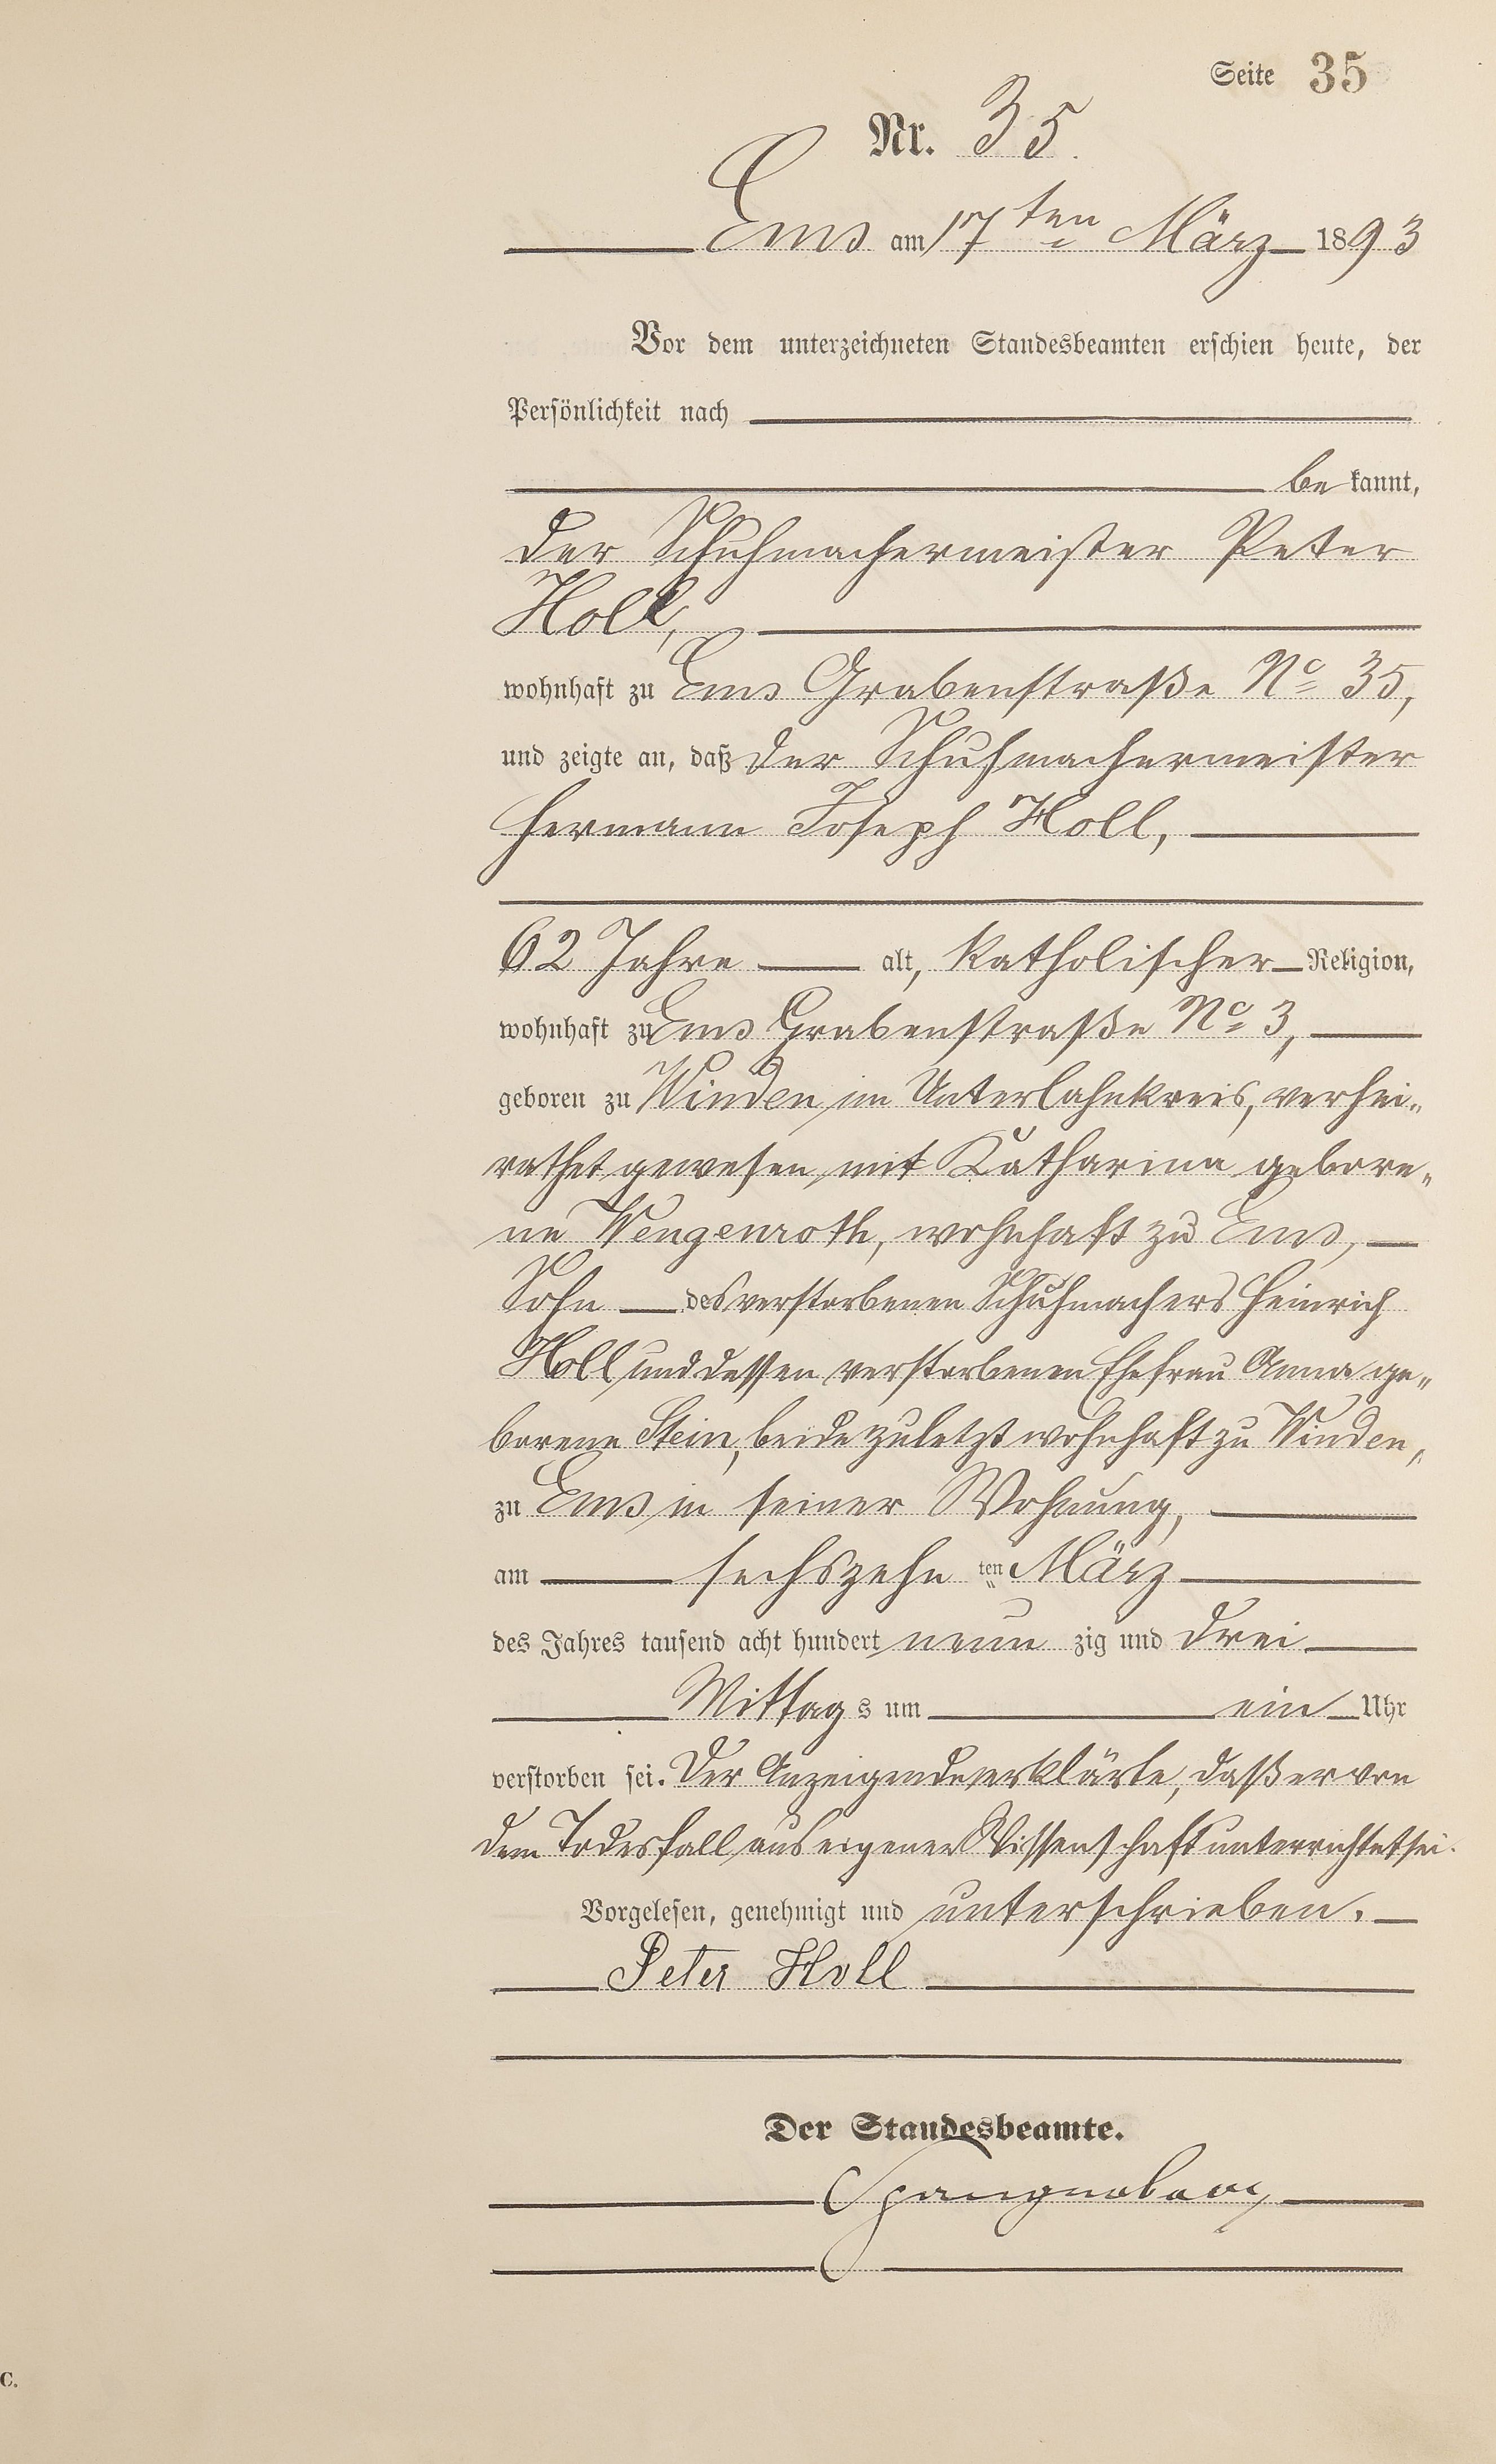 Seite 35
Nr. 35.
Ems am 17ten März 1893
Vor dem unterzeichneten Standesbeamten erschien heute, der
Persönlichkeit nach
bekannt,
der Schuhmachermeister Peter
Holl,
wohnhaft zu Ems Grabenstraße No 35,
und zeigte an, daß der Schuhmachermeister
Hermann Joseph Holl,
62 Jahre alt, katholischer Religion,
wohnhaft zu Ems Grabenstraße No 3,
geboren zu Winden im Unterlahnkreis, verhei„
rathet gewesen mit Katharina gebore„
ne Wengenroth, wohnhaft zu Ems,
Sohn des verstorbenen Schuhmachers Heinrich
Holl und dessen verstorbenen Ehefrau Anna ge„
borene Stein, beide zuletzt wohnhaft zu Winden,
zu Ems in seiner Wohnung,
am sechszehnten März
des Jahres tausend acht hundert neunzig und drei
Mittags um ein Uhr
verstorben sei. Der Anzeigende erklärte, daß er von
dem Todesfall aus eigener Wissenschaft unterrichtet sei.
Vorgelesen, genehmigt und unterschrieben.
Peter Holl
Der Standesbeamte.
C.